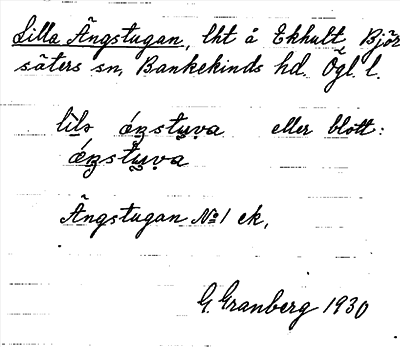 Lilla Ängstugan, lht å Ekhult, Björ
säters sn, Bankekinds hd. Ögl. l.
eller blott:
Ängstugan No 1 ek,
G. Granberg 1930